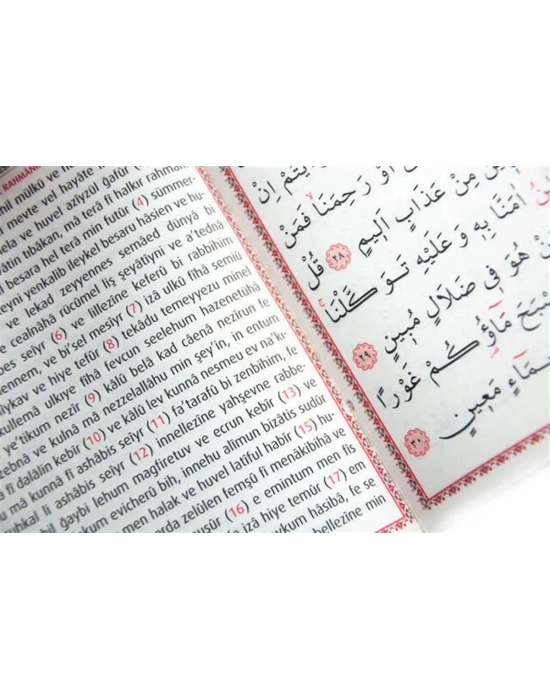 RAHMAN
mülkü ve
meyte vel hayâte
ve huvel azîyzül ğafûr
tıbâkan, mâ terâ fî halkır rahmân
besara hel terâ min futûr (4) sümmer-
yenkalib ileykel besaru hâsien ve hu-
ve lekad zeyyennes semâed dünyâ bi
cealnâhâ rücûmel liş şeyâtîyni ve a'tednâ
seîyr (6) ve lillezîne keferû bi rabbihim
ennem, ve bi'sel mesîyr (7) izâ ülkû fîhâ semiû
ve hiye tefûr (8) tekâdu temeyyezu minel
küllemâ ulkıye fîhâ fevcun seelehum hazenetühâ
e'tikum nezîr (9) kâlû belâ kad câenâ nezîrun fe
zebnâ ve kulnâ mâ nezzelallâhu min şey'in, in entum
fî dalâlin kebîr (10) ve kâlû lev kunnâ nesmeu ev na'k-
mâ kunnâ fî ashâbis seîyr (11) fa'tarafû bi zenbihim, fe
uhkal li ashâbis seîyr (12) innellezîne yahşevne rabbe-
bil ğaybi lehum mağfiretuv ve ecrun kebîr (13) ve
kum evicherû bih, innehu alîmun bizâtis sudûr
men halak ve huvel latîful habîr (15) hu-
arda zelûlen femşû fî menâkibihâ ve
nuşûr (16) e emintum men fis
izâ hiye temûr (17) em
eykum hâsibâ, fe se
bellezîne min
يْتُمْ اِنْ
اَوْ رَحِمَنَا فَمَنْ
مِنْ عَذَابٍ اَلٖيمٍ ﴿٢٨﴾ قُلْ
اٰمَنَّا بِهٖ وَعَلَيْهِ تَوَكَّلْنَا
مَنْ هُوَ فٖى ضَلَالٍ مُبٖينٍ ﴿٢٩﴾
صْبَحَ مَٓاؤُ۬كُمْ غَوْرًا
بِمَٓاءٍ مَعٖينٍ ﴿٣٠﴾